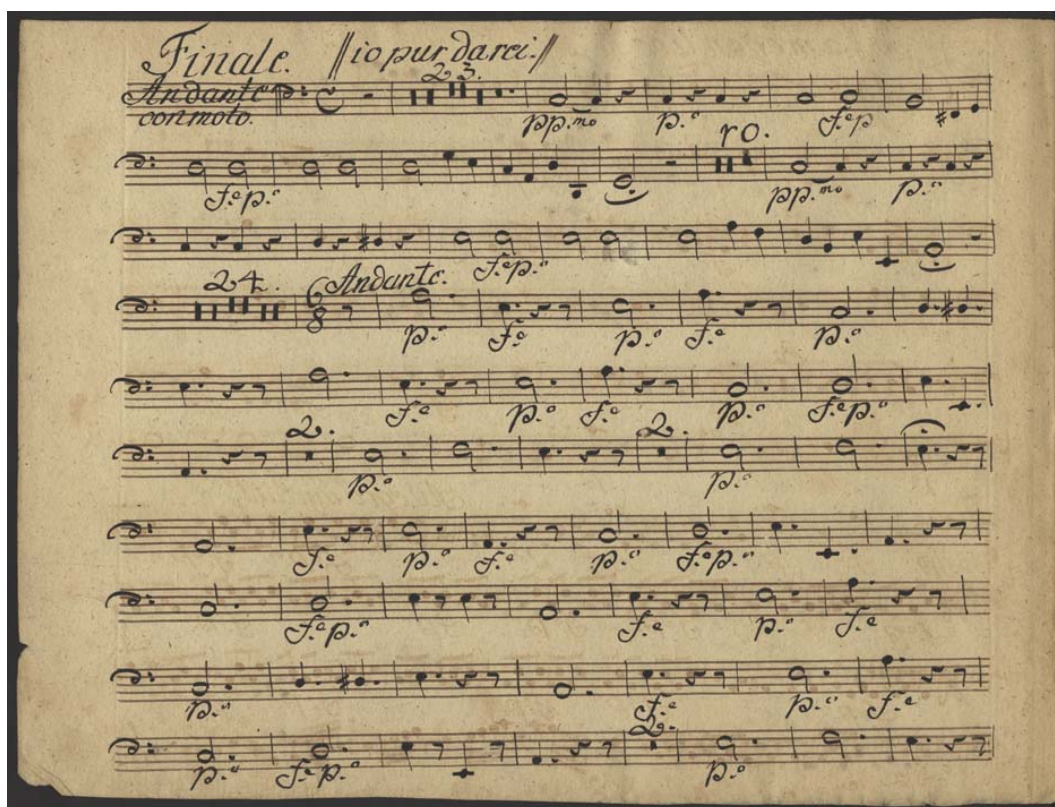 Finale. // io pur darei. //
Andante 23.
con moto. pp.mo p.o f.e p
10.
f.e p.o pp.mo p.o
f.e p.o
24. 6/8 Andante.
p.o f.e p.o f.e p.o
f.e p.o f.e p.o f.e p.o
2. 2.
p.o p.o
f.e p.o f.e p.o f.e p.o
f.e p.o f.e p.o f.e
p.o f.e p.o f.e
2.
p.o f.e p.o p.o